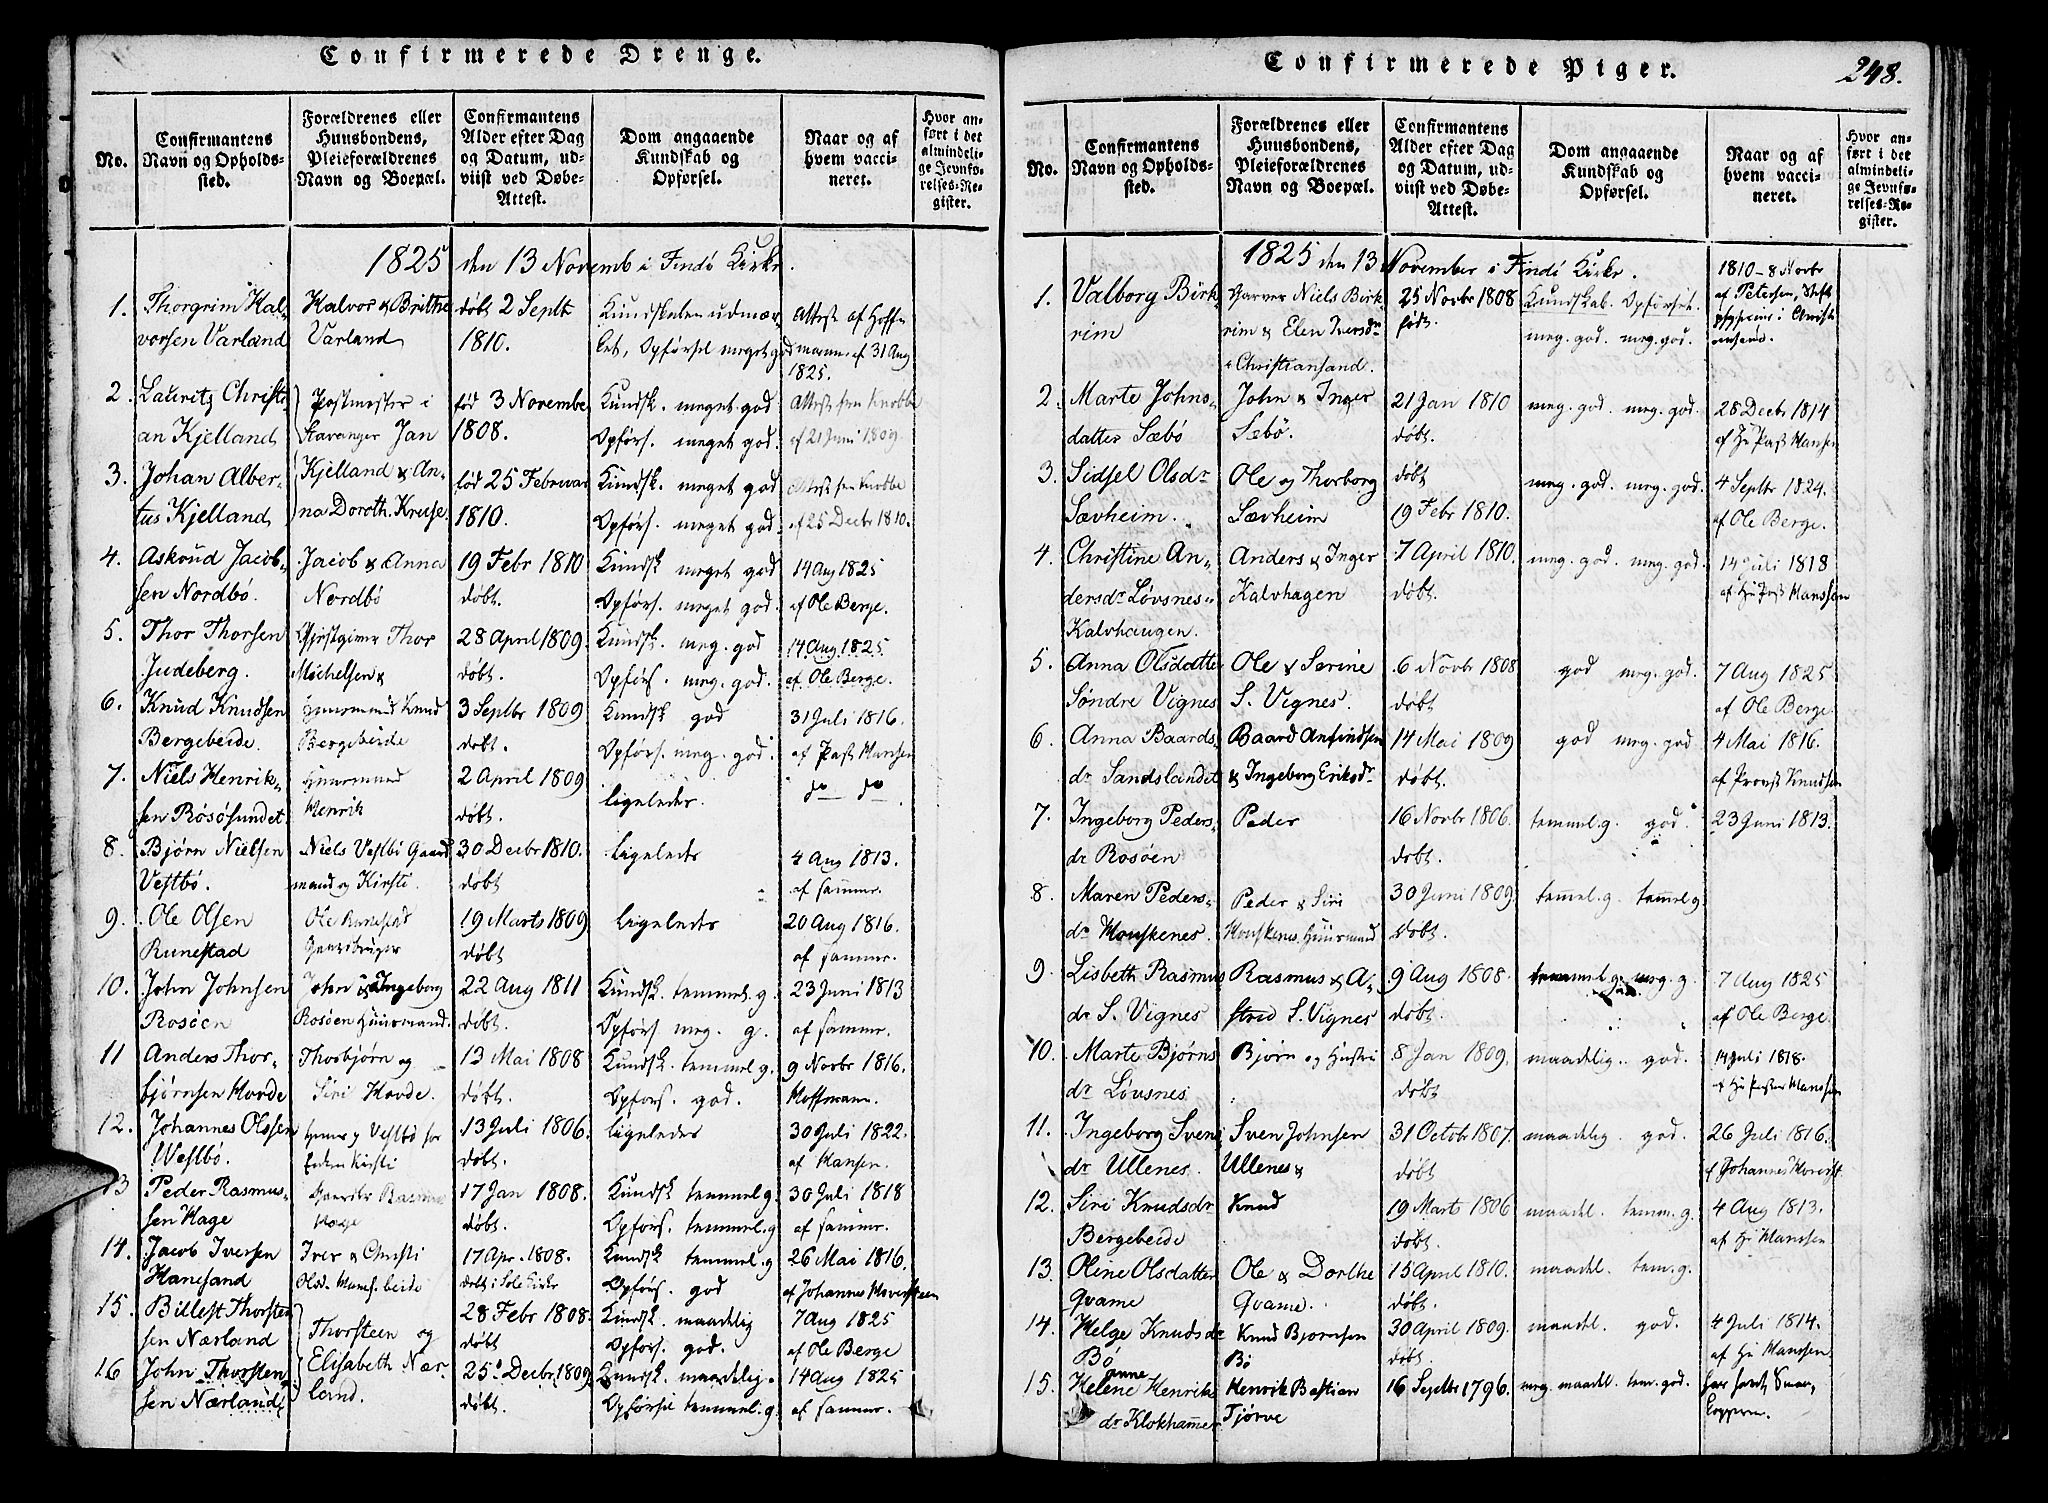 Confirmerede Drenge.
No.
Confirmantens
Navn og Opholds-
sted.
Forældrenes eller
Huusbondens,
Pleieforældrenes
Navn og Boepæl.
Confirmantens
Alder efter Dag
og Datum, ud-
viist ved Døbe-
Attest.
Dom angaaende
Kundskab og
Opførsel.
Naar og af
hvem vacci-
neret.
Hvor an-
ført i det
almindeli-
ge Jevnfø-
relses-Re-
gister.
1825 den 13 Novemb i Findö Kirke.
1. Thorgrim Hal- Halvor & Brithe døbt 2 Septb Kundskaben udmær- Attest af Hoff
vorsen Varland Varland 1810. ket, Opførsel meget god mann af 31 Aug
1825.
2. Lauritz Christi- Postmester i fød 3 Novembe Kundsk. meget god Attest fra Knobbe
an Kjelland Stavanger Jan 1808. Opførs. meget god. af 21 Juni 1809
3. Johan Alber- Kjelland & An- fød 25 Februar Kundsk. meget god Attest fra Knobbe
tus Kjelland na Doroth. Kruse. 1810. Opførs. meget god. af 25 Decbr 1810.
4. Askoud Jacob- Jacob & Anna 19 Febr 1810 Kundsk meget god 14 Aug 1825
sen Nordbö. Nordbö døbt. Opførs. meget god. af Ole Berge.
5. Thor Thorsen Gjestgiver Thor 28 April 1809 Kundsk. meg. god 14 Aug 1825
Judeberg. Michelsen & døbt. Opførs. meg. god. af Ole Berge.
6. Knud Knudsen Huusmand Knud 3 Septbr 1809 Kundsk god 31 Juli 1816.
Bergebeide. Bergebeide døbt. Opførs. meg. god. af Past Hansen
7. Niels Henrik- Huusmand 2 April 1809 ligeledes. do do
sen Rösösundet. Henrik døbt.
8. Bjørn Nielsen Niels Vestbö Gaard 30 Decbr 1810. ligeleds 4 Aug 1813.
Vestbö. mand og Kirsti. døbt af samme.
9. Ole Olsen Ole Runestad 19 Marts 1809 ligeleds 20 Aug 1816.
Runestad Gaardbruger døbt af samme.
10. John Johnsen John & Ingeborg 22 Aug 1811 Kundsk. temmel. g. 23 Juni 1813
Rosöen Rosöen Huusmand. døbt. Opførs meg. g. af samme.
11 Anders Thor- Thorbjørn og 13 Mai 1808 Kundsk. temmel. g. 9 Novbr 1816.
bjørnsen Hovde Siri Hovde. døbt. Opførs. god. Hoffmann.
12. Johannes Olssen Vestbö 13 Juli 1806. ligeledes 30 Juli 1822.
Westbö. Kirsti døbt. af Hansen.
13 Peder Rasmus- Rasmus 17 Jan 1808. Kundsk temmel. g. 30 Juli 1818
sen Hage Hage døbt. Opførs. temmel. g af samme.
14. Jacob Iversen Iver & Christi 17 Apr. 1808. Kundsk temmel. g 26 Mai 1816.
Hanesand Olsd. døbt i Sole Kirke Opførs. god af Johannes Moversteen
15. Billest Thorsten Thorsteen og 28 Febr 1808. Kundsk. maadelig 7 Aug 1825
sen Nærland døbt Opførs. god. af Ole Berge
16 John Thorsten- Elisabeth Nær- 25 Decbr 1809. Kundsk. maadelig. 14 Aug 1825
sen Nærland. land. døbt. Opførsel temmel. g. af samme.
Confirmerede Piger.
248.
No.
Confirmantens
Navn og Opholds-
sted.
Forældrenes eller
Huusbondens,
Pleieforældrenes
Navn og Boepæl.
Confirmantens
Alder efter Dag
og Datum, ud-
viist ved Døbe-
Attest.
Dom angaaende
Kundskab og
Opførsel.
Naar og af
hvem vacci-
neret.
Hvor an-
ført i det
almindeli-
ge Jevnfø-
relses-Re-
gister.
1825 den 13 November i Findö Kirke. 1810 - 8 Novbr
1. Valborg Birk- Garver Niels Birk 25 Novbr 1808 Kundskab. Opførsel. af Petersen,
rim rim & Elen Iversdr født. meg. god. meg. god.
i Christiansand.
2. Marte Johns- John & Inger 21 Jan 1810 meg. god. meg. god. 28 Decbr 1814
datter Sæbö Sæbö. døbt. af Hr Past Hansen
3. Sidsel Olsdr Ole og Thorborg døbt meg. god. meg. god. 4 Septbr 1824.
Sævheim. Sævheim 19 Febr 1810. af Ole Berge.
4. Christine An- Anders & Inger 7 April 1810. meg. god. meg. god. 14 Juli 1818
dersdr Løvsnes- Kalvhagen døbt. af Hr Past Hanssen
Kalvhaugen.
5. Anna Olsdatte Ole & Serine 6 Novbr 1808 god meg. god. 7 Aug 1825
Søndre Vignes S. Vignes. døbt af Ole Berge.
6. Anna Baards- Baard Anfindsen 14 Mai 1809 god meg. god 4 Mai 1816.
dr Sandslandet & Ingeborg Eriksdr døbt. af Provst Knudsen
7. Ingeborg Peders- Peder 16 Novbr 1806. temmel. g. god. 23 Juni 1813.
dr Rosöen døbt.
8. Maren Peders- Peder & Siri 30 Juni 1809. temel. g. temel g
dr Houskenes. Houskenes. Huusmand døbt.
9 Lisbeth Rasmus Rasmus & A- 9 Aug 1808. temmel. g. meg. g. 7 Aug 1825
dr S. Vignes strid S. Vignes døbt. af Ole Berge.
10. Marte Bjørns Bjørn og Hustru 8 Jan 1809. maadelig. god. 14 Juli 1818.
dr Løvsnes døbt af Hr Pastor Hanssen
11. Ingeborg Svens Sven Johnsen 31 Octobr 1807. maadelig. god. 26 Juli 1816.
dr Ullenes. Ullenes & døbt af Johannes Moverst
12. Siri Knudsdr Knud 19 Mart 1806 maadel. temm. g. 4 Aug 1813.
Bergebeide døbt. af Hr Hanssen
13. Oline Olsdatter Ole & Dorthe 15 April 1810. maadel. tem. g.
Qvame Qvame. døbt.
14. Helge Knudsdr Knud Bjørnsen 30 April 1809. maadel. god. 4 Juli 1814.
Bö Bö døbt. af Hr Hanssen.
15. Helene anne Henriks Henrik Bastian 16 Septbr 1796. meg. maadel. tem. god.
dr Klokhamer Tjørve Koppern.